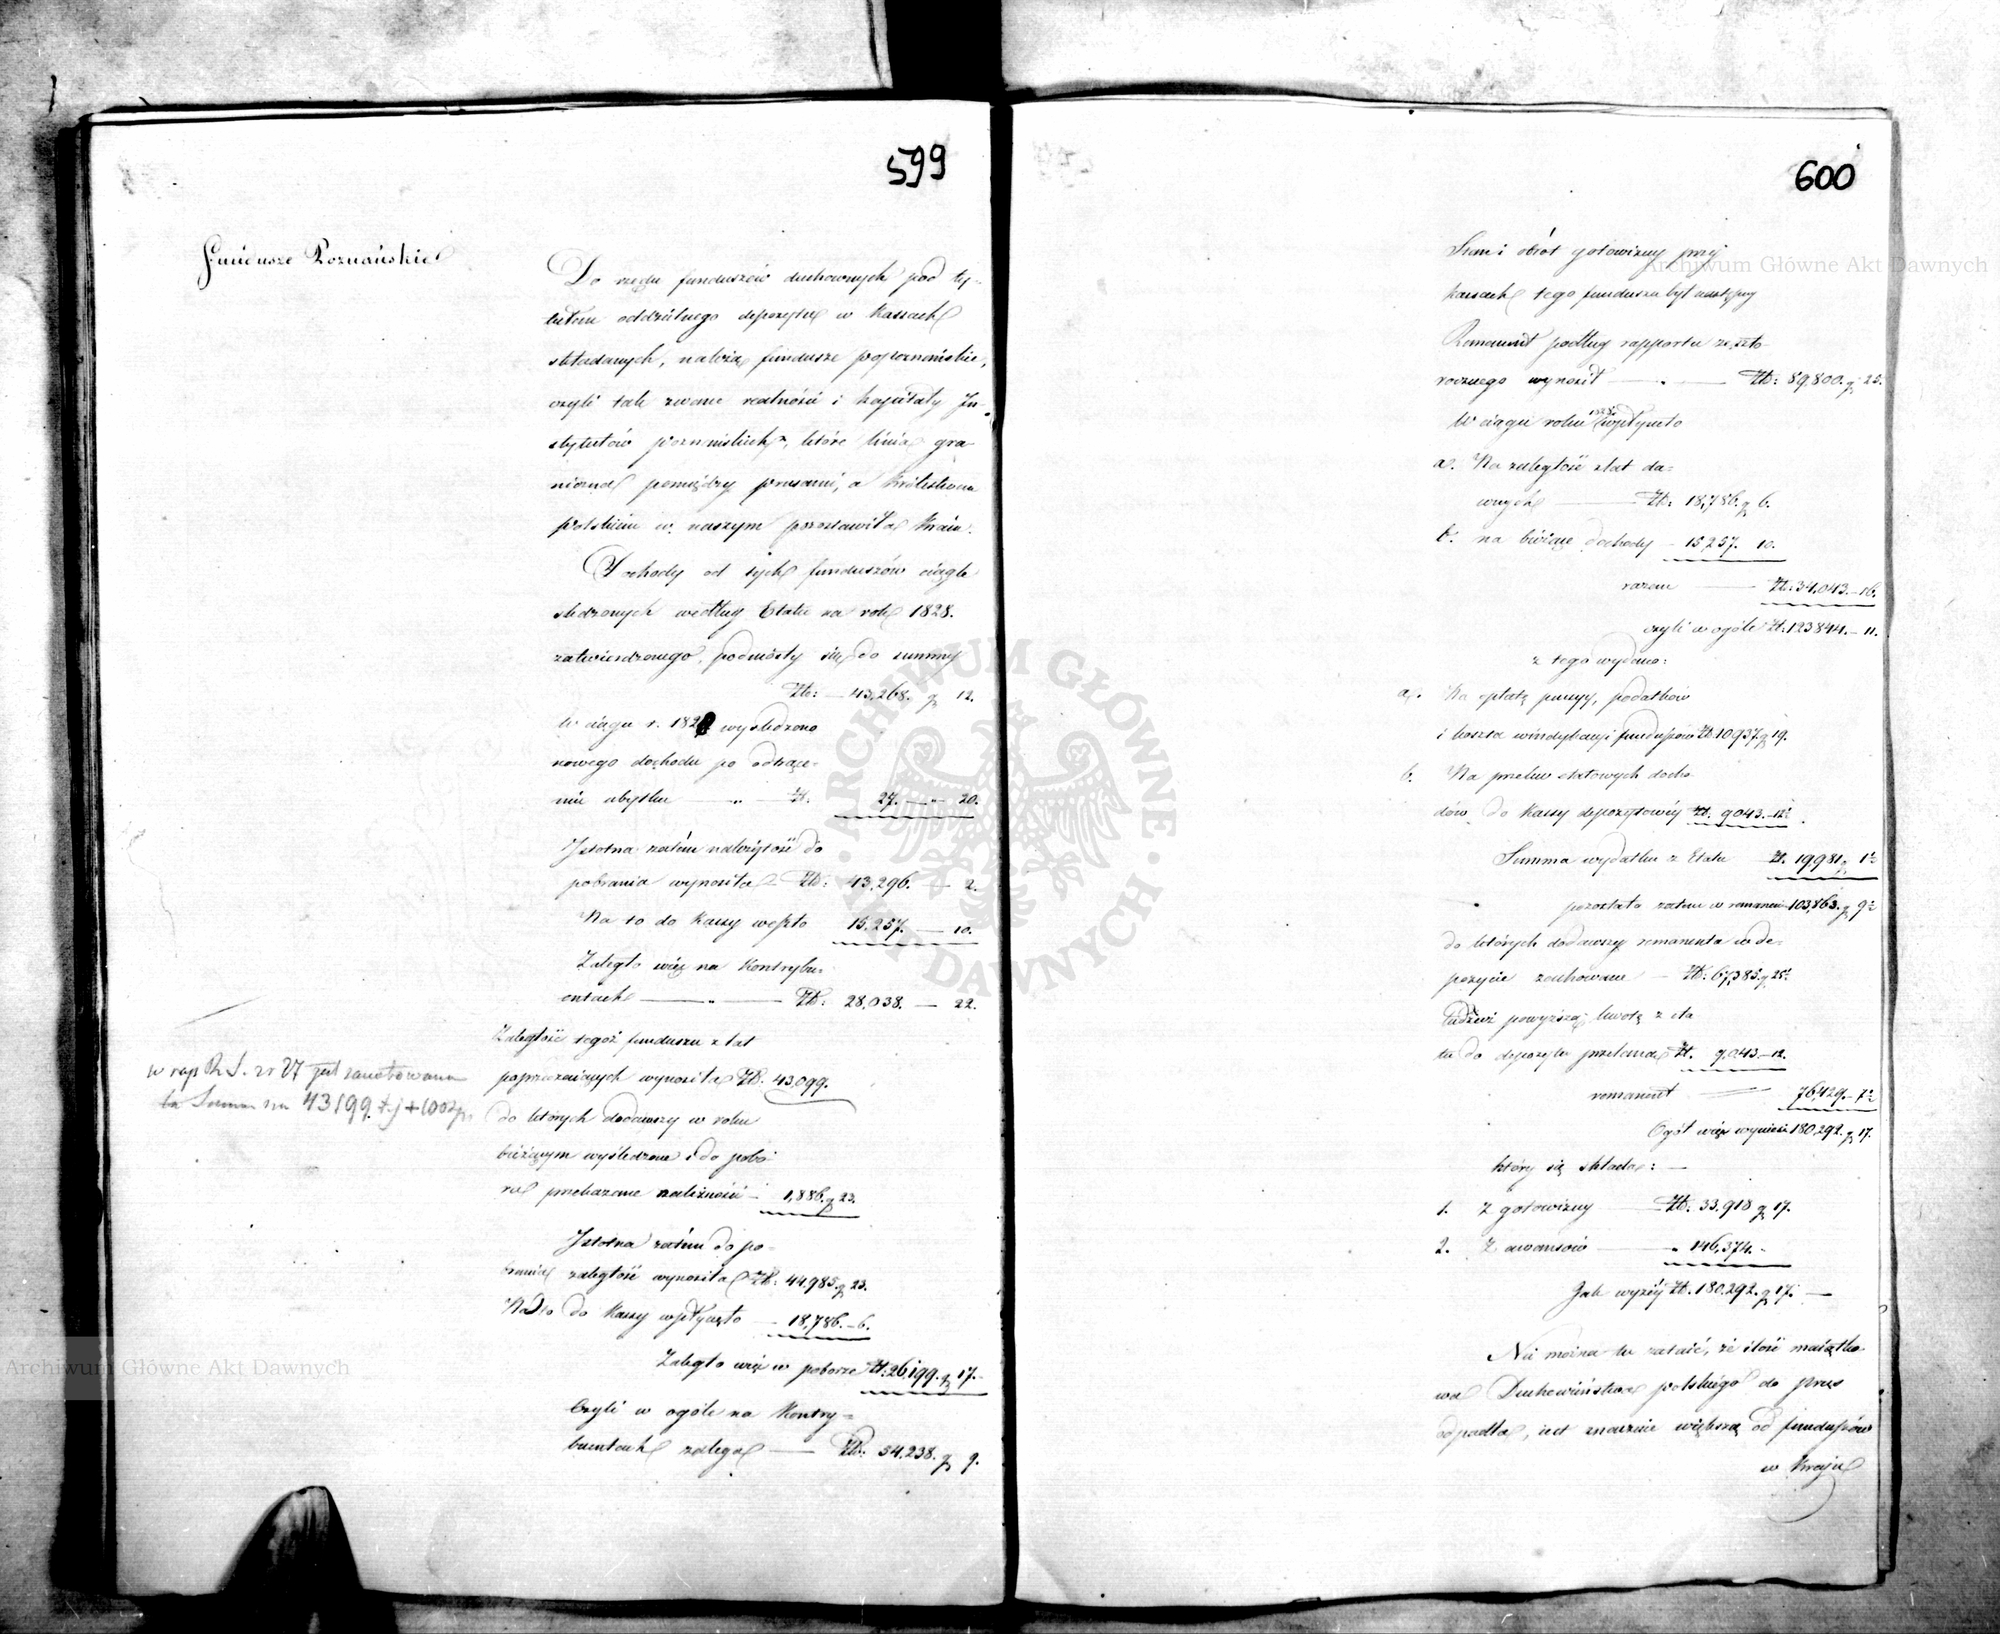 599
Fundusze Poznańskie
Do rzędu funduszów duchownych pod ty-
tułem oddzielnego depozytu w Kassach
składanych, należą fundusze popoznańskie,
czyli tak zwane realności i kapitały In-
stytutów poznańskich, które linia gra-
niczna pomiędzy prusami, a Królestwem
Polskiem w naszym pozostawiła Kraiu.
Dochody od tych funduszów ciągle
śledzonych według Etatu na rok 1828.
zatwierdzonego, podniosły się do summy
Złt: — 43,268. gr 12.
W ciągu r. 1828 wyśledzono
nowego dochodu po odtrące-
niu ubytku — „ — Zł. 27. — „ 20.
Istotna zatém należytość do
pobrania wynosiła Złt: 43,296. — 2.
Na to do Kassy weszło 15,257. — 10.
Zaległo więc na Kontrybu-
entach — „ — Złt: 28,038. — 22.
Zaległość tegoż funduszu z lat
poprzedniczych wynosiła Złt. 43,099.
w rap R. S. z r 27 jest zanotowana
ta Summa na 43199 t.j + 100 złp.
do których dodawszy w roku
bieżącym wyśledzone i do pobo-
ru przekazane należności — 1,886. gr 23.
Istotna zatém do po-
brania zaległość wynosiła Złt: 44,985. gr 23.
Na to do Kassy wpłynęło — 18,786. — 6.
Zaległo więc w poborze Zł. 26,199. gr 17.
Czyli w ogóle na Kontry-
buentach zalega — Złt. 54,238. gr 9.
600
Stan i obrót gotowizny przy
kassach tego funduszu był następny
Remanent podług rapportu zeszło-
rocznego wynosił — „ — Złt: 89,800. gr 25.
W ciągu roku 1828 wpłynęło
a. Na zaległość z lat da-
wnych — Złt: 18,786. gr 6.
b. na bieżące dochody — 15,257. 10.
razem — Złt: 34,043. — 16.
czyli w ogóle Zł. 123844. — 11.
z tego wydano:
a. Na opłatę pensyj, podatków
i koszta windykacyi funduszów Zł. 10,937. gr 19.
b. Na przelew etatowych docho-
dów do Kassy depozytowéy Zł. 9043. — 12½
Summa wydatku z Etatu Zł. 19981. gr 1½
pozostało zatém w remanencie 103,863. gr 9½
do których dodawszy remanenta w de-
pozycie zachowane — Złt: 67,385. gr 25½
tudzież powyższą kwotę z eta
tu do depozytu przelaną Zł. 9,043. — 12.
remanent — 76,429. — 7½
Ogół więc wyniesie 180,292. gr 17.
który się składa: —
1. Z gotowizny — Złt: 33,918 gr 17.
2. Z awansów — „ 146,374. -
Jak wyżéy Złt. 180,292. gr 17. —
Nie można tu zataić, że ilość maiątko-
wa Duchowieństwa polskiego do prus
odpadła, iest znacznie większą od funduszów
w Kraju
Archiwum Główne Akt Dawnych
Archiwum Główne Akt Dawnych
ARCHIWUM GŁÓWNE AKT DAWNYCH